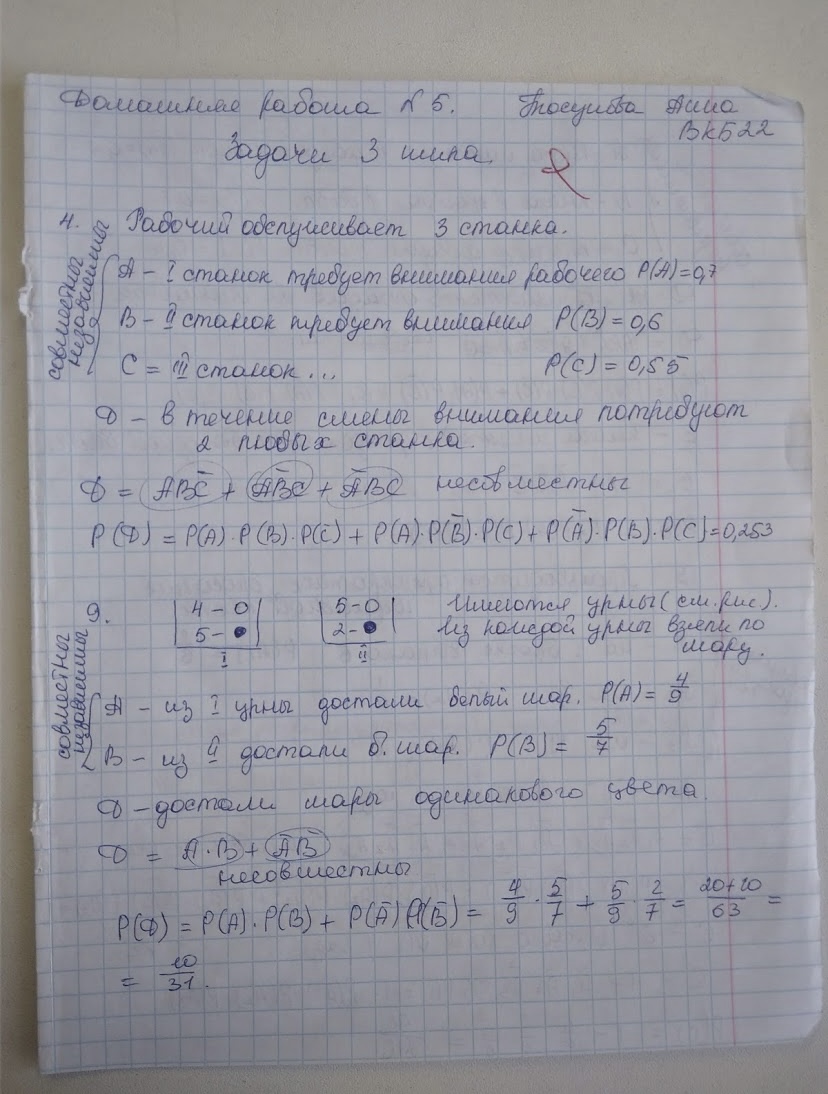 Домашняя работа №5.
Анна
ВКБ22
Задачи 3 типа.
4. Рабочий обслуживает 3 станка.
совместны
независимы
A – I станок требует внимания рабочего P(A)=0,7
B – II станок требует внимания P(B)=0,6
C = III станок... P(C)=0,55
D – в течение смены внимания потребуют
2 любых станка.
D = ABC̄ + AB̄C + ĀBC несовместны
P(D) = P(A)·P(B)·P(C̄) + P(A)·P(B̄)·P(C) + P(Ā)·P(B)·P(C)=0,253
9. 4 – O 5 – O Имеются урны (см. рис.).
5 – ● 2 – ● Из каждой урны взяли по
I II шару.
совместны
независимы
A – из I урны достали белый шар. P(A)= 4/9
B – из II достали б. шар. P(B)= 5/7
D – достали шары одинакового цвета.
D = A·B + ĀB̄
несовместны
P(D) = P(A)·P(B) + P(Ā)P(B̄) = 4/9 · 5/7 + 5/9 · 2/7 = 20+10/63 =
= 10/31.